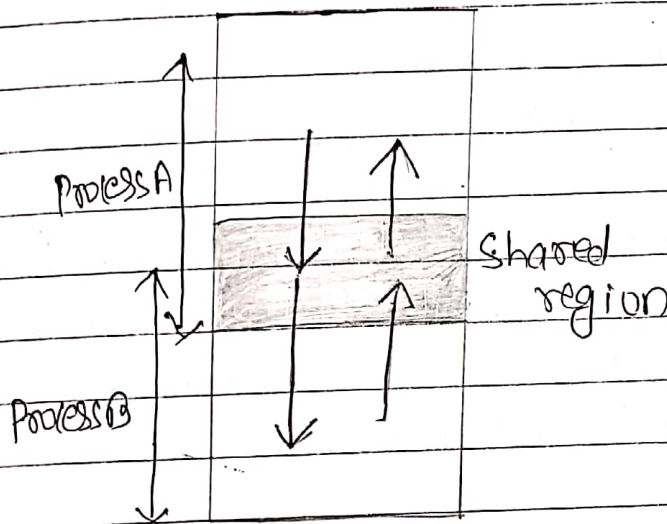 Process A
Shared
region
Process B